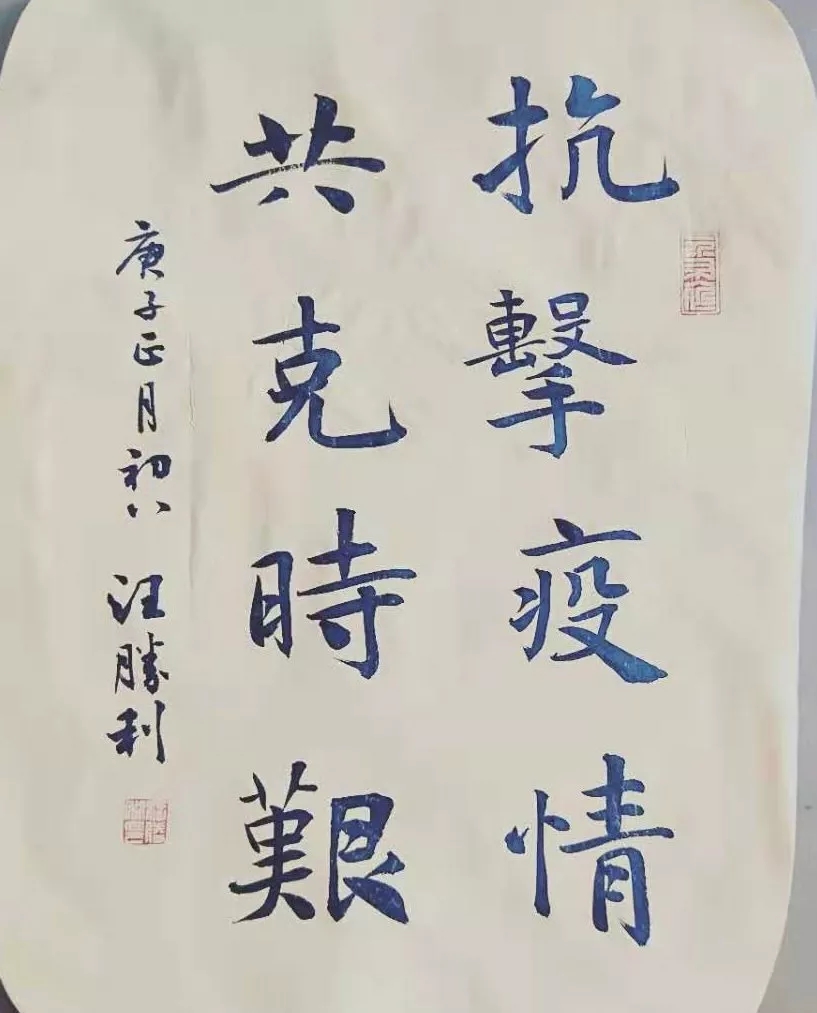 抗擊疫情
共克時艱
庚子正月初八 汪勝利